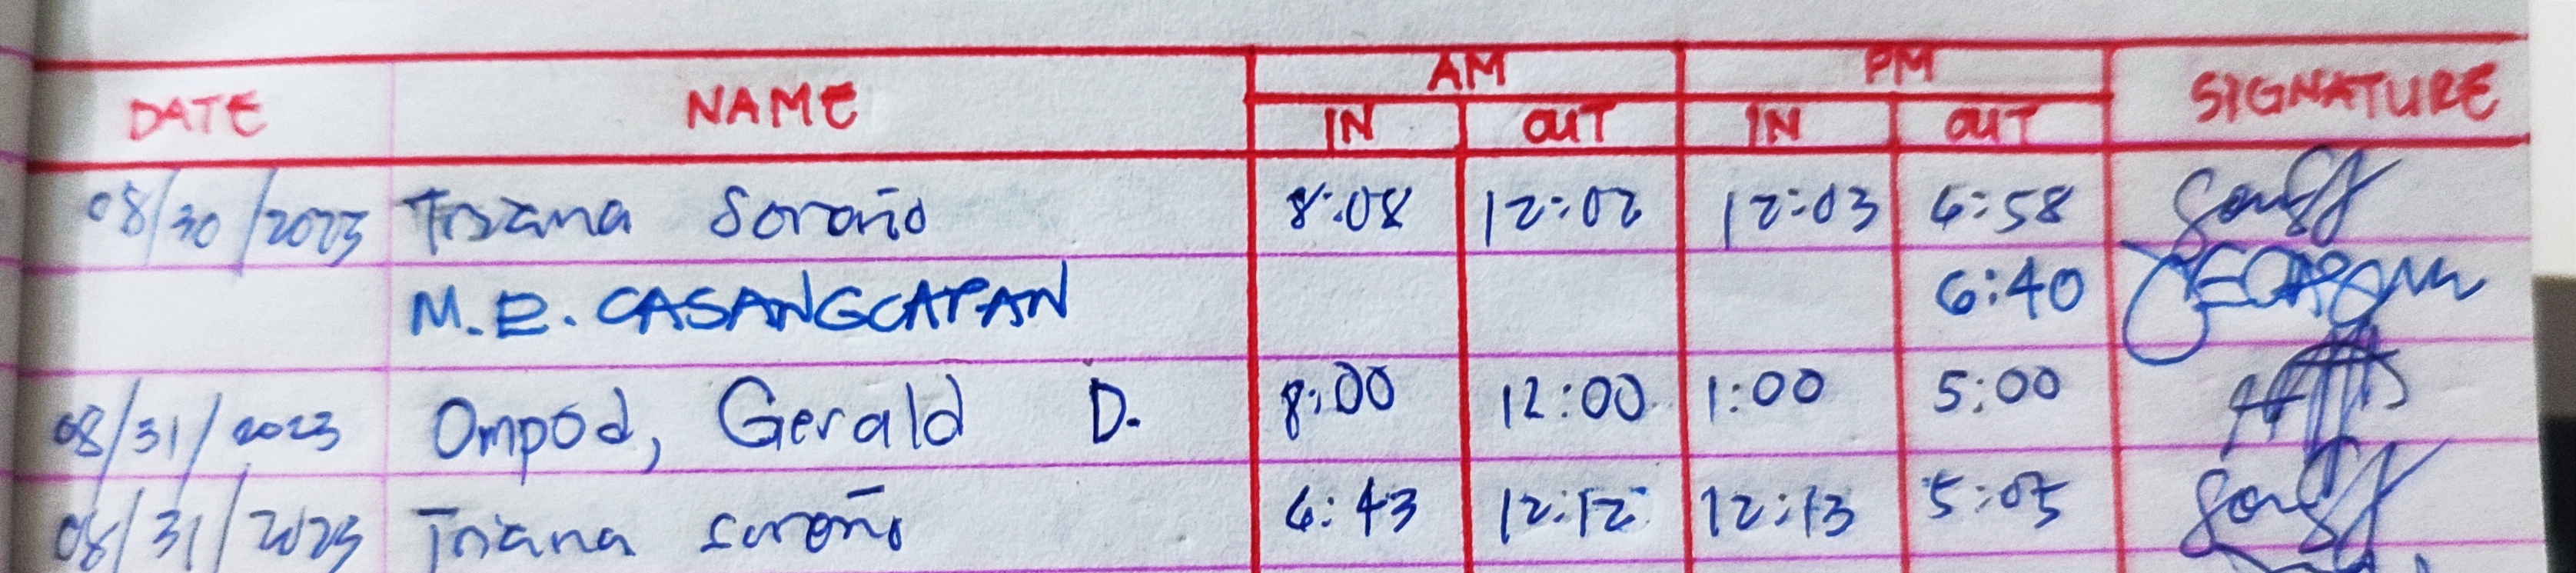 DATE NAME AM PM SIGNATURE
IN OUT IN OUT
08/30/2023 Triana Soroño 8:08 12:02 12:03 6:58
M.E. CASANGCAPAN 6:40
08/31/2023 Ompod, Gerald D. 8:00 12:00 1:00 5:00
08/31/2023 Triana Soroño 6:43 12:12 12:13 5:05